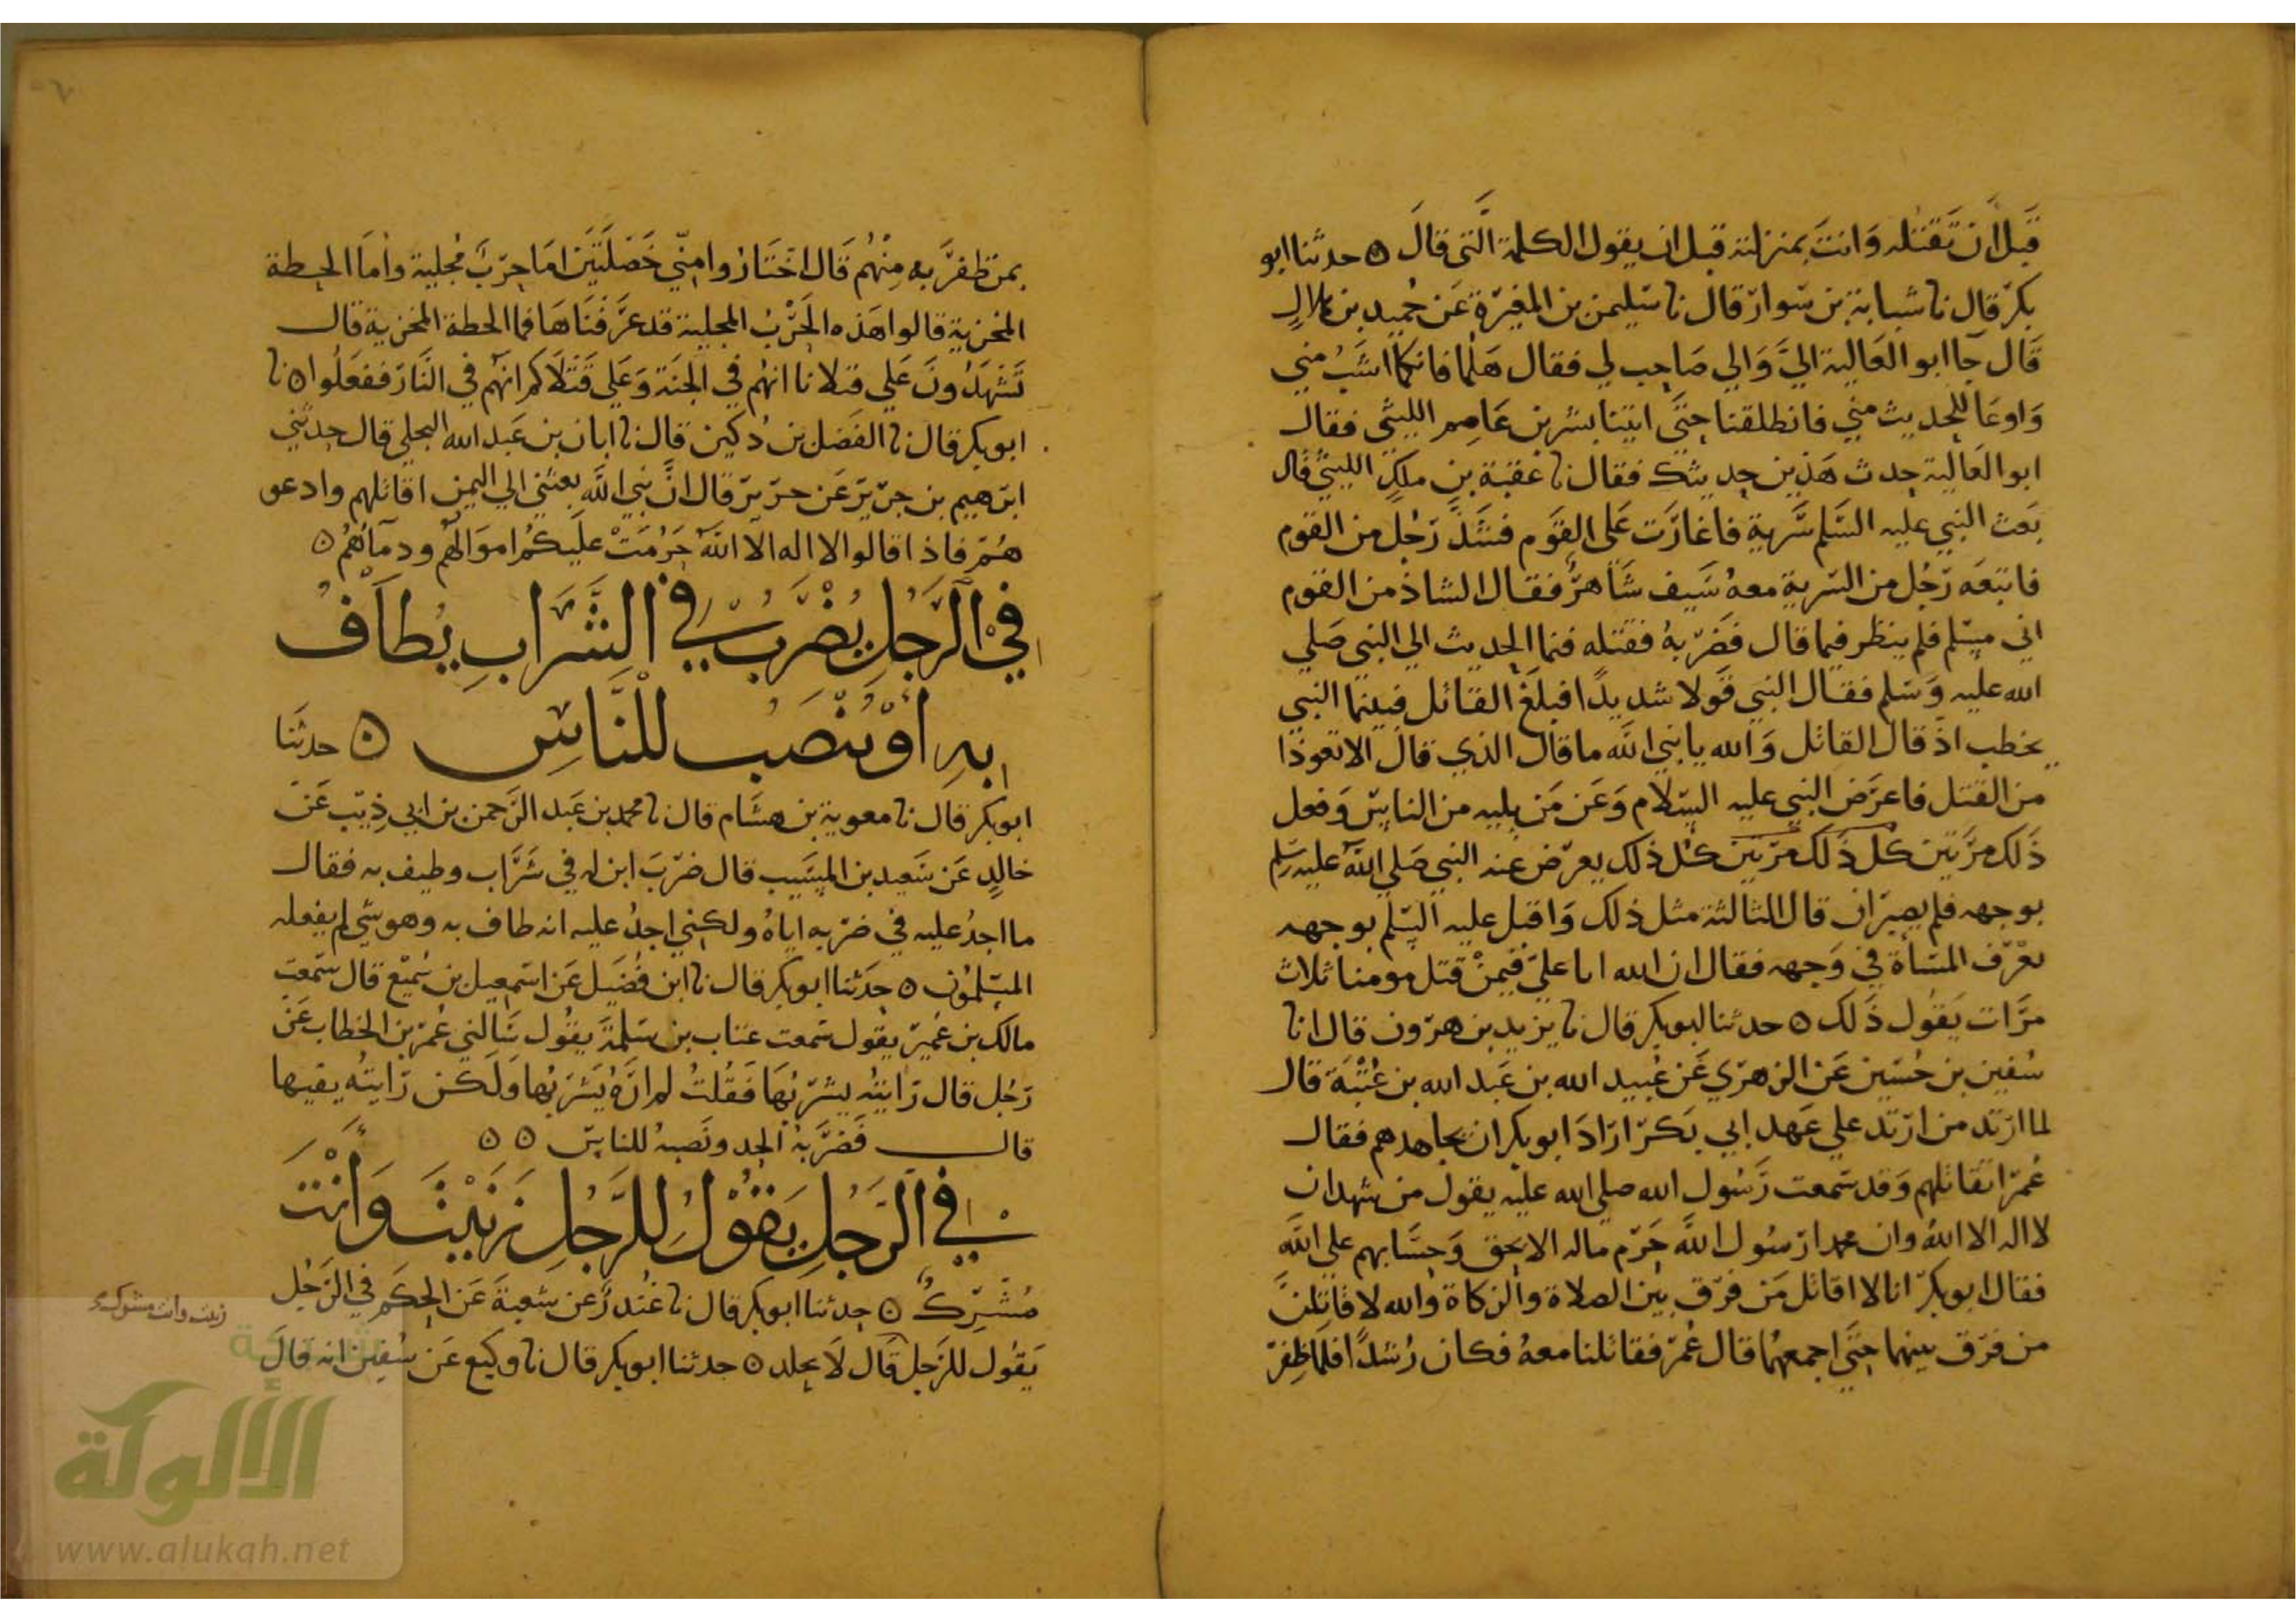 قَبلَ ان تَقتله وَانتَ بمنزلته قبل ان يقول الكلمة الَّتي قالَ ۞ حدثنا ابو
بكر قال نا شبابة بن سوار قال نا سليمن بن المغيرة عَن حُميد بن هلال
قَال جآ ابو العَالية اليَّ وَالي صَاحب لي فقال هَلما فانكما اشَبُّ مني
وَاوعَا للحديث مني فانطلقنا حتَّى اتينا بشر بن عَاصم الليثي فقال
ابو العَالية حدث هَذين حديثك فقال نا عقبة بن ملك الليثي قال
بَعث النبي عليه السَّلم سَرية فاغارَت عَلى القَوم فشَذَّ رَجُل من القوم
فاتبعَه رَجُل من السرية معهُ سَيف شَاهرُ فقال الشاذ من القوم
اني مسلم فلم ينظر فيما قال فضَربهُ فقتله فنما الحديث الي النبي صَلي
الله عليه وَسَلم فقال النبي قَولا شديدًا فبلغَ القاتل فبينما النبي
يخطب اذ قال القاتل وَالله يا نبي الله ما قال الذي قال الا تعوذا
من القتل فاعرَض النبي عليه السَلام وَعَن مَن يليه من الناس وَفعل
ذَلك مرَّتين كل ذَلك مرتين كل ذلك يعرض عنه النبي صَلي الله عليه وسلم
بوجهه فلم يصبر ان قال الثالثة مثل ذلك وَاقبل عليه السَلم بوجهه
تعْرَف المسَاْة في وَجهه فقال ان الله ابا عليَّ فيمنْ قتل مومنا ثلاث
مرَّات يَقول ذَلك ۞ حدثنا ابو بكر قال نا يزيد بن هرون قال انا
سُفين بن حُسَين عَن الزهري عَن عُبيد الله بن عَبد الله بن عُتْبَة قال
لما ارتد من ارتد علي عَهد ابي بَكر ارَادَ ابو بكر ان يجاهدهم فقال
عُمر اتقاتلهم وَقد سَمعت رَسُول الله صلي الله عليه يقول من شهد ان
لا اله الا اللهُ وان محمدا رسُول اللهَّ حَرم ماله الا بحق وَحسَابهم علي اللهَّ
فقال ابو بكر انا لا اقاتل مَن فرّق بين الصلاة والزكاة والله لاقاتلنَّ
من فرّق بينهما حتَّى اجمعهُما قال عُمر فقاتلنا معهُ فكان رُشدًا فلما ظفر
بمن ظفرَ به مِنْهُم قَال اختَارُوا منِّي خَصْلَتَين اما حَربٌ مُجلية وامَا الحطة
المخزية قالوا هَذه الحَرْبُ المجلية قد عَرَفنَاهَا فما الحطة المخزية قال
تَشْهَدُونَ عَلي قتلانا انهُم في الجنَة وَعَلي قَتْلَاكم انَهُم في النَّار ففعَلُوا ۞ نا
ابو بكر قال نا الفَضل بن دُكين قال نا ابان بن عَبد الله البجلي قال حدثني
ابرَهيم بن جَرير عَن جرير قال انَّ نبي اللهَّ بعثني الي اليمن اقاتلهم وادعو
هُم فاذا قالوا لا اله الا الله حَرُمَتْ عليكُم اموَالهُم ودمآئهُمُ ۞
في الرَّجُل يُضْرَبُ في الشَّرَابِ يُطَافُ
بهِ أوْ يُنْصَبُ للنَّاسِ ۞ حدثَنا
ابو بكر قال نا معوية بن هشَام قال نا محمد بن عَبد الرحمن بن ابي ذِيب عَن
خالدٍ عَن سَعيد بن المسَيب قال ضرَبَ ابن له في شَرَاب وطيف به فقال
ما اجدُ عليه في ضربه اياهُ ولكنِي اجدُ عليه انه طاف به وهو شي لم يفعله
المسلمُون ۞ حدَثنا ابو بكر قال نا ابن فُضَيل عَن اسمعيل بن سُميْع قال سَمعت
مالك بن عُمير يقول سَمعت عتاب بن سَلمة يقول سَالني عُمر بن الخطاب عَن
رَجُل قال رَايته يشربُهَا فَقُلتُ لم ارَهُ يَشرَبُها وَلكن رَايتُه يقيها
قال فَضَرَبهُ الحد ونَصبهُ للناس ۞ ۞
في الرَّجُلِ يَقُولُ للرَّجُلِ زَنَيْتَ وَأنْتَ
مُشْرِكٌ ۞ حدثنا ابو بكر قال نا غُندرٌ عن شعبةَ عَن الحكَم في الرَجُل
زنيت وانت مشرك
يَقُول للرَجل قَال لَا يجلد ۞ حدثنا ابو بكر قال نا وكيع عَن سُفين انه قالَ
شبكة
الألوكة
www.alukah.net